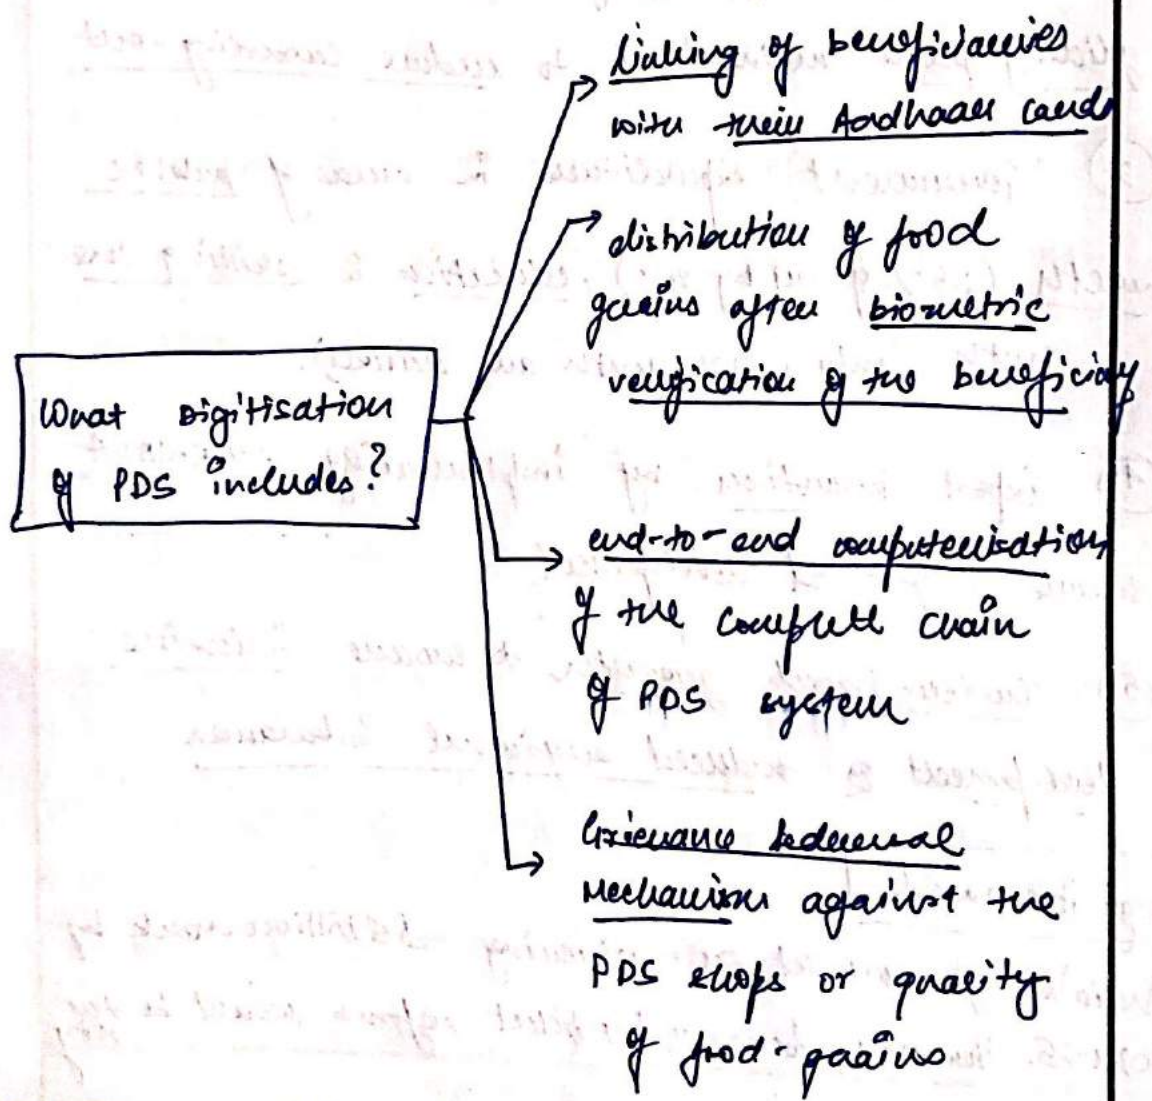 What digitisation
of PDS includes?
linking of beneficiaries
with their Aadhaar cards
distribution of food
grains after biometric
verification of the beneficiary
end-to-end computerisation
of the complete chain
of PDS system
Grievance Redressal
Mechanism against the
PDS shops or quality
of food-grains